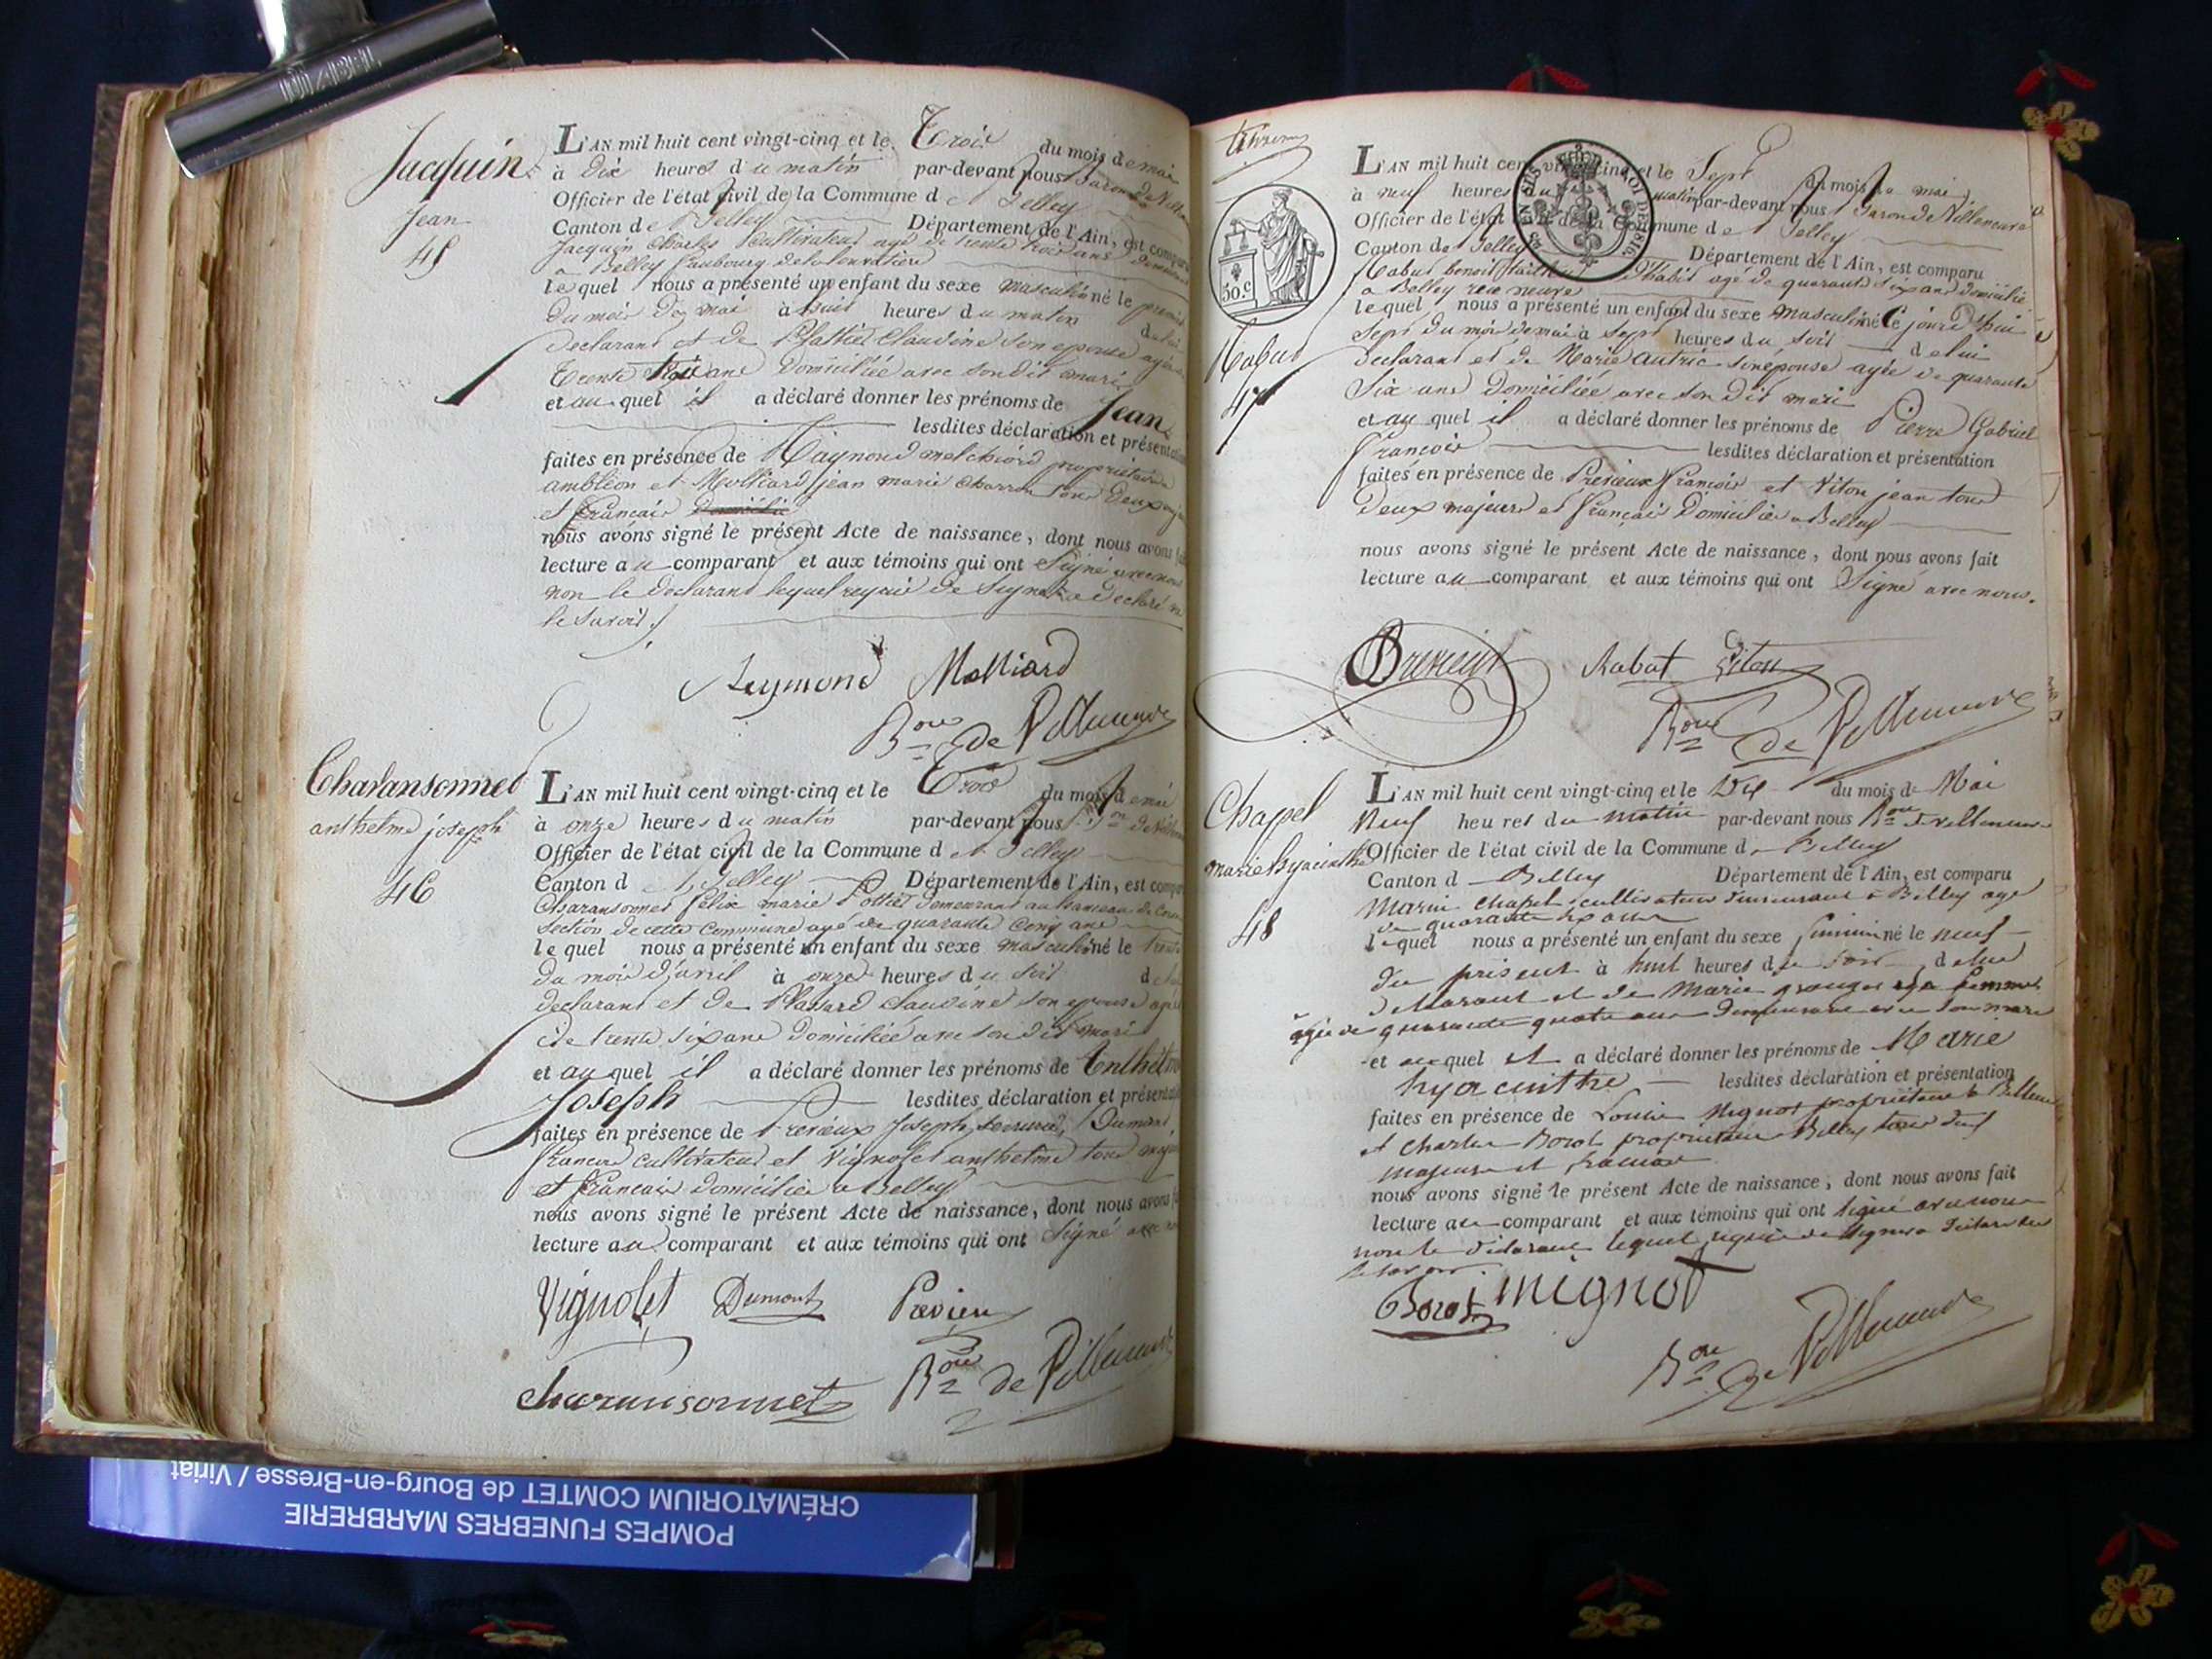 DIABEL
Jacquin
Jean
45
L'AN mil huit cent vingt-cinq et le Trois du mois de mai
à Dix heures du matin par-devant nous Baron de Ville
Officier de l'état civil de la Commune de Belley
Canton de Belley Département de l'Ain, est comparu
Jacquin Charles Cultivateur agé de trente trois ans
a Belley faubourg de
lequel nous a présenté un enfant du sexe masculin né le premier
du mois de mai à huit heures du matin de lui
declarant et de Claudine son epouse agée de
trente trois ans Domiciliée avec son dit mari
et au quel il a déclaré donner les prénoms de Jean
lesdites déclaration et présentation
faites en présence de Raymond melchiord propriétaire
ambléon et Molliard jean marie charron tous Deux
et français
nous avons signé le présent Acte de naissance, dont nous avons fait
lecture au comparant et aux témoins qui ont Signé avec nous
non le Declarant lequel requis de Signer a declaré ne
le savoir
Reymond Molliard
Bon de Villeneuve
Charansonnet
anthelme joseph
46
L'AN mil huit cent vingt-cinq et le Trois du mois de mai
à onze heures du matin par-devant nous Bon de
Officier de l'état civil de la Commune de Belley
Canton de Belley Département de l'Ain, est comparu
Charansonnet félix marie demeurant au hameau de
section de cette Commune agé de quarante Cinq ans
lequel nous a présenté un enfant du sexe masculin né le trente
du mois d'avril à onze heures du soir de lui
declarant et de Claudine son epouse agée
de trente six ans Domiciliée avec son dit mari
et au quel il a déclaré donner les prénoms de Anthelme
Joseph lesdites déclaration et présentation
faites en présence de Prévieux Joseph Dumont
françois cultivateur et Vignolet anthelme tous
et français domicilies a Belley
nous avons signé le présent Acte de naissance, dont nous avons
lecture au comparant et aux témoins qui ont Signé avec
Vignolet Dumont Previeu
Charansonnet Bon de Villeneuve
50.c
Rabut
47
L'AN mil huit cent vingt-cinq et le Sept du mois de mai
à neuf heures du matin par-devant nous Baron de Villeneuve
Officier de l'état civil de la Commune de Belley
Canton de Belley Département de l'Ain, est comparu
Rabut benoit tailleur D'habit agé de quarante six ans domicilié
a Belley rue neuve
lequel nous a présenté un enfant du sexe masculin né Ce jourd'hui
Sept du mois de mai à sept heures du soir de lui
declarant et de Marie autric son épouse agée de quarante
Six ans Domiciliée avec son Dit mari
et au quel il a déclaré donner les prénoms de Pierre Gabriel
François lesdites déclaration et présentation
faites en présence de Prévieux François et Viton jean tous
Deux majeurs et français Domicilies a Belley
nous avons signé le présent Acte de naissance, dont nous avons fait
lecture au comparant et aux témoins qui ont Signé avec nous.
Rabut Viton
Bon de Villeneuve
Chapel
marie hyacinthe
48
L'AN mil huit cent vingt-cinq et le Dix du mois de Mai
Neuf heures du matin par-devant nous Bon de Villeneuve
Officier de l'état civil de la Commune de Belley
Canton d Belley Département de l'Ain, est comparu
Marin Chapel cultivateur demeurant à Belley agé
de quarante six ans
lequel nous a présenté un enfant du sexe féminin né le neuf
du présent à huit heures du soir de lui
déclarant et de Marie sa femme
agée de quarante quatre ans demeurant avec son mari
et au quel il a déclaré donner les prénoms de Marie
hyacinthe lesdites déclaration et présentation
faites en présence de Louis Mignot propriétaire à Belley
et Charles Borot propriétaire à Belley tous deux
majeurs et français
nous avons signé le présent Acte de naissance, dont nous avons fait
lecture au comparant et aux témoins qui ont signé avec nous
non le déclarant lequel requis de signer a déclaré ne
le savoir.
Borot mignot
Bon de Villeneuve
POMPES FUNEBRES MARBRERIE
CRÉMATORIUM COMTET de Bourg-en-Bresse / Viriat